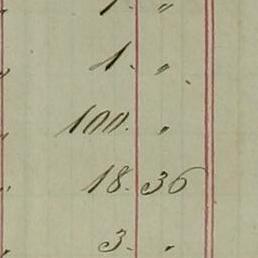 1. "
1. "
100. "
18. 36
3. "